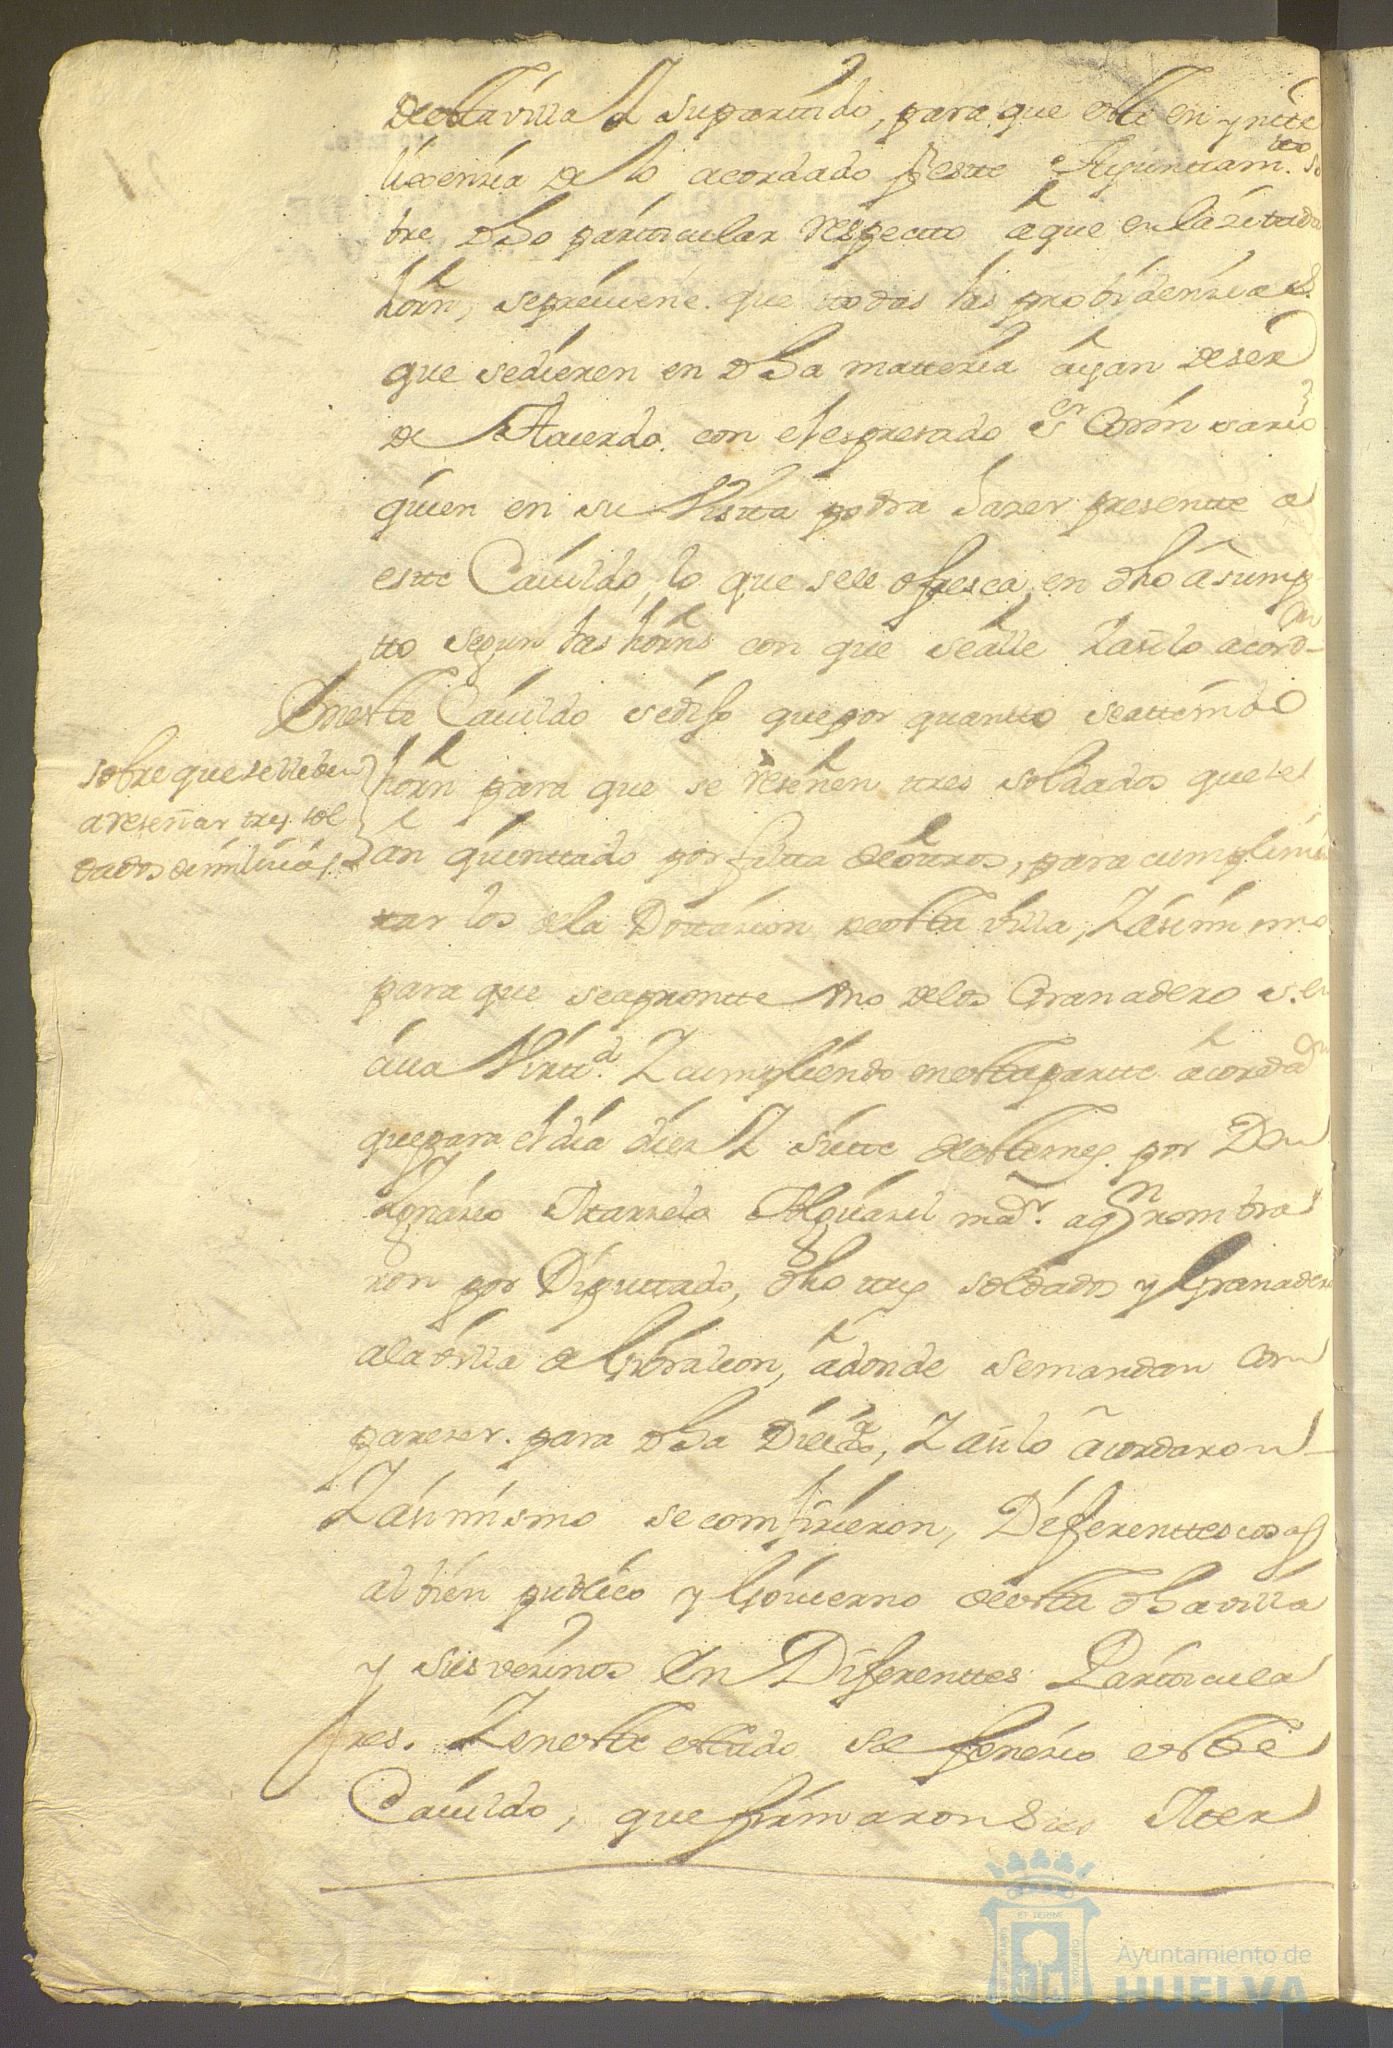 de esta villa Y supartido, para que este en ynte
lixenzia de lo acordado por este Ayuntam.to so
bre dho particular respecto â que en la zitada
horn, sepreuiene que todas las probidenzias
que sedieren en dha matteria âyan de ser
de Acuerdo con el espresado S.or Comisario
quien en su Visita podra hazer presente a
este Cauildo, lo que sele ofresca en dho âsump
tto segun las horns con que se alle Yasilo acord.on
En este Cauildo sedijo que por quantto seattenido
sobre que se lleben
a reseñar tres sol
dados de milicias
horn para que se reseñen tres soldados quese
ân quinttado por falta de otros, para cumplimen
tar los dela Dottazion de esta villa, Y asimismo
para que seapronte vno delos Granaderos. en
cuia Virtt.d Y cumpliendo en esta parte âcorda.on
quepara el dia diez Y siette de este mes por Don
Ygnazio Alguazil m.or a q.n nombra
ron por Diputtado, dho tres soldados y Granadero
ala villa de Gibraleon, âdonde semandan com
parezer. para dha Yasilo âcordaron
Y asimismo se comfirieron, Diferenttes cosas
al bien publico y Gouierno de esta dha villa
y sus vezinos En Diferenttes Particula
res. Y en este estado se fenezio este
Cauildo, que firmaron Sus Mer
Ayuntamiento de
HUELVA